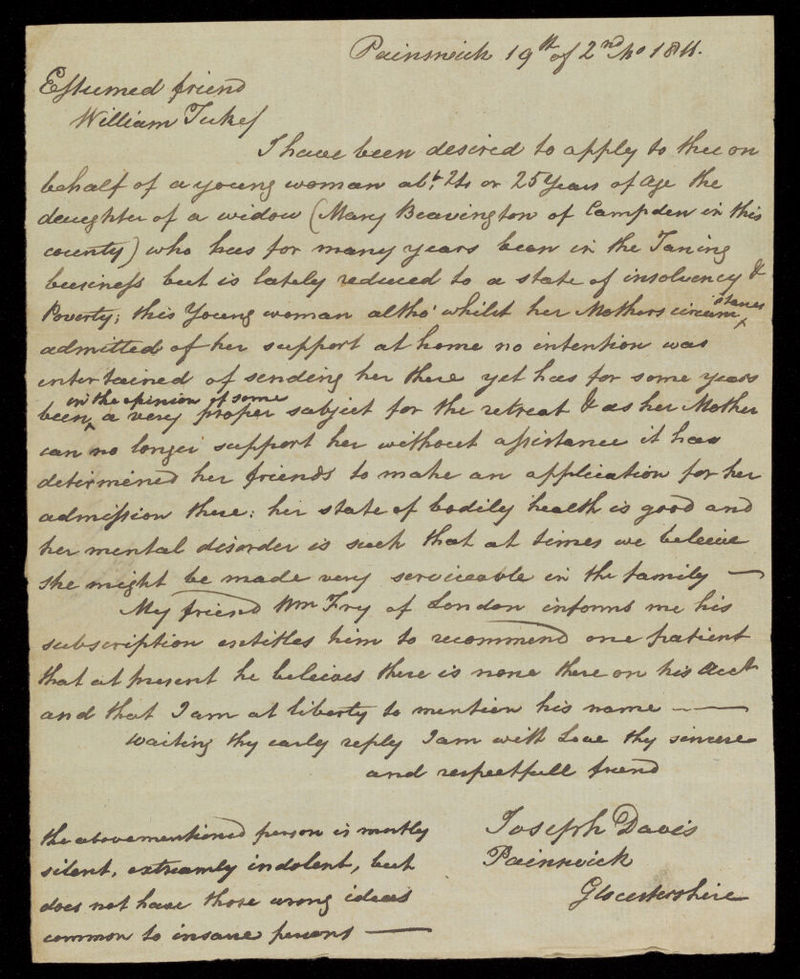 Painswick 19th of 2nd Mo 1811.
Esteemed friend
William Tuke/
I have been desired to apply to thee on
behalf of a young woman abt. 24 or 25 Years of age the
daughter of a widow (Mary Beavington of Campden in this
county) who has for many years been in the Taning
business but is lately reduced to a state of insolvency &
Poverty; this Young woman altho' whilst her Mothers circumstances
admitted of her support at home no intention was
entertained of sending her there yet has for some years
been in the opinion of some a very proper subject for the retreat & as her Mother
can no longer support her without assistance it has
determined her friends to make an application for her
admission there: her state of bodily health is good and
her mental disorder is such that at times we beleive
she might be made very serviceable in the family —
My friend Wm Fry of London informs me his
subscription entitles him to recommend one patient
that at present he beleives there is none there on his Acct
and that I am at liberty to mention his name — —
Waiting thy early reply I am with Love thy sincere
and respectfull friend
Joseph Davis
Painswick
Glocestershire
the abovementioned person is mostly
silent, extreamly indolent, but
does not have those wrong ideas
common to insane persons —